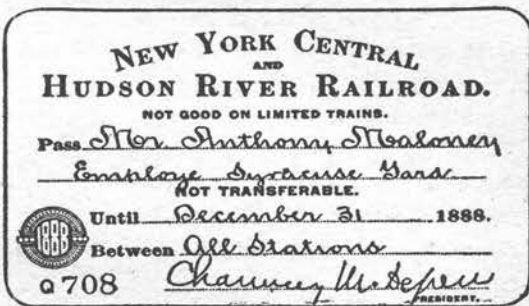 NEW YORK CENTRAL
AND
HUDSON RIVER RAILROAD.
NOT GOOD ON LIMITED TRAINS.
Pass Mr Anthony Maloney
Employe Syracuse Yard
NOT TRANSFERABLE.
Until December 31 1888.
1888
Between All Stations
Q 708 Chauncey M. Depew
PRESIDENT.